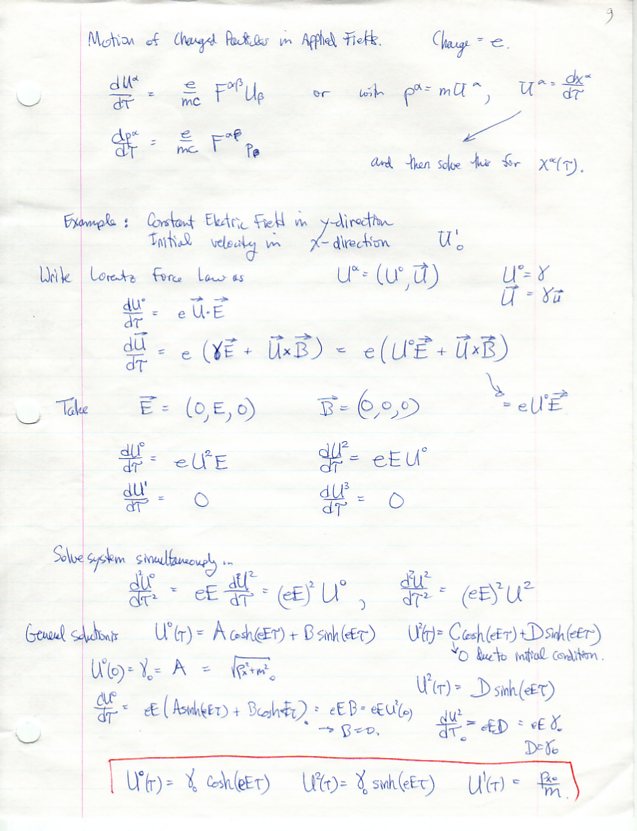 9
Motion of Charged Particles in Applied Fields. Charge = e.
dU^α/dτ = e/mc F^αβ U_β or with p^α = mU^α, U^α = dx^α/dτ
dp^α/dτ = e/mc F^αβ p_β
and then solve this for x^α(τ).
Example: Constant Electric Field in y-direction
Initial velocity in x-direction U'_0
Write Lorentz Force Law as U^α = (U^0, U⃗) U^0 = γ
U⃗ = γu⃗
dU^0/dτ = e U⃗·E⃗
dU⃗/dτ = e (γE⃗ + U⃗×B⃗) = e(U^0E⃗ + U⃗×B⃗)
= eU^0E⃗
Take E⃗ = (0,E,0) B⃗ = (0,0,0)
dU^0/dτ = eU^2E dU^2/dτ = eEU^0
dU^1/dτ = 0 dU^3/dτ = 0
Solve system simultaneously...
d^2U^0/dτ^2 = eE dU^2/dτ = (eE)^2 U^0, d^2U^2/dτ^2 = (eE)^2 U^2
General solutions U^0(τ) = A cosh(eEτ) + B sinh(eEτ) U^2(τ) = C cosh(eEτ) + D sinh(eEτ)
↳ 0 due to initial condition.
U^0(0) = γ_0 = A = √(p_x^2+m^2)_0
U^2(τ) = D sinh(eEτ)
dU^0/dτ = eE(A sinh(eEτ) + B cosh(eEτ))_0 = eEB = eEU^2(0) dU^2/dτ_0 = eED = eEγ_0
→ B=0. D=γ_0
U^0(τ) = γ_0 cosh(eEτ) U^2(τ) = γ_0 sinh(eEτ) U^1(τ) = p_x0/m